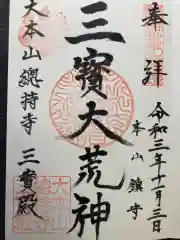 奉拝
令和三年十一月三日
本山鎮守
三寳大荒神
大本山總持寺
三寳殿